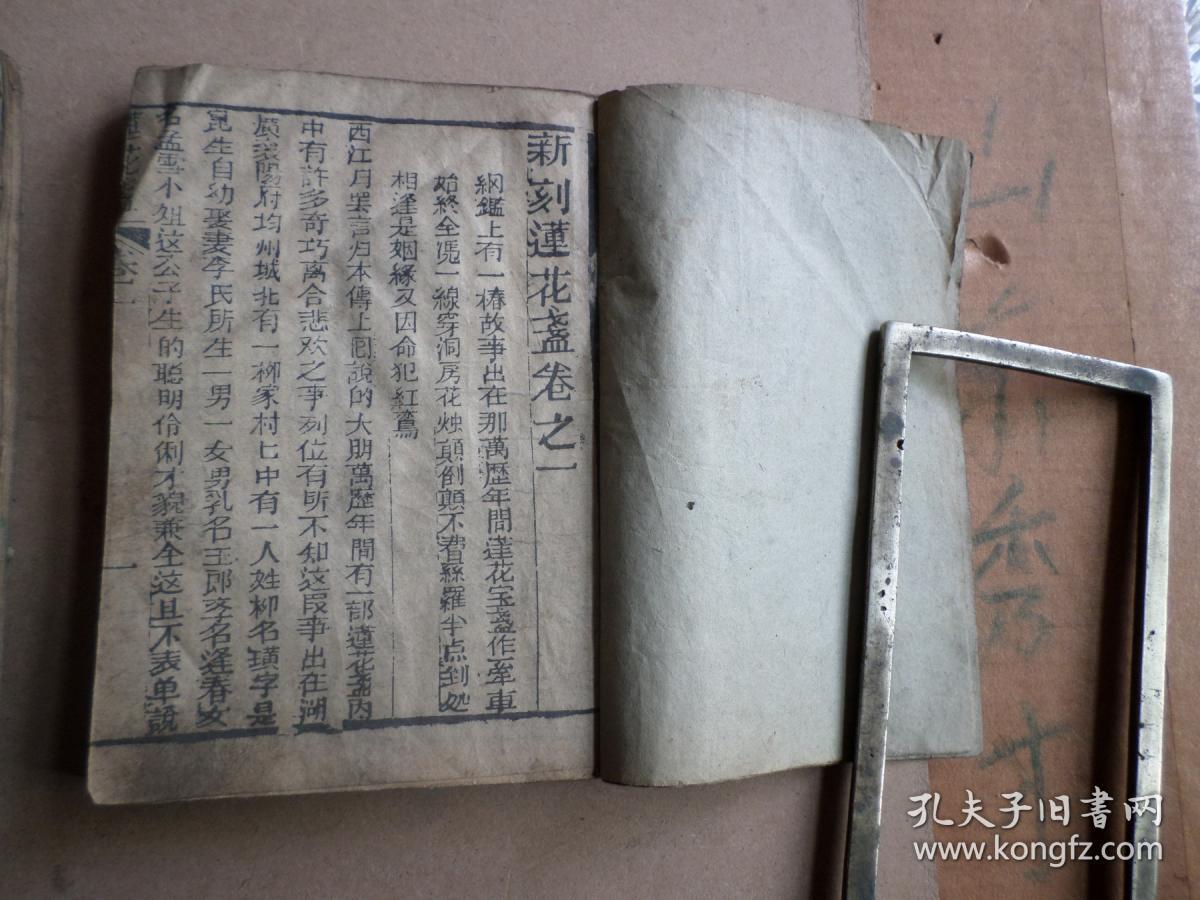 新刻蓮花盞卷之一
綱鑑上有一樁故事出在那萬歷年間蓮花宝盞作牽車
始終全凴一線穿洞房花烛顛倒顛不費絲羅半点到処
相逢是姻緣只因命犯紅鸞
西江月罢言归本傳上回說的大明萬歷年間有一部蓮花盞内
中有許多奇巧离合悲欢之事列位有所不知这段事出在湖
廣襄陽府均州城北有一柳家村七中有一人姓柳名璜字是
崑生自幼娶妻李氏所生一男一女男乳名玉郎学名逢春女
名孟雪小姐这公子生的聪明伶俐才貌兼全这且不表单說
蓮花盞 卷一 一
孔夫子旧书网
www.kongfz.com